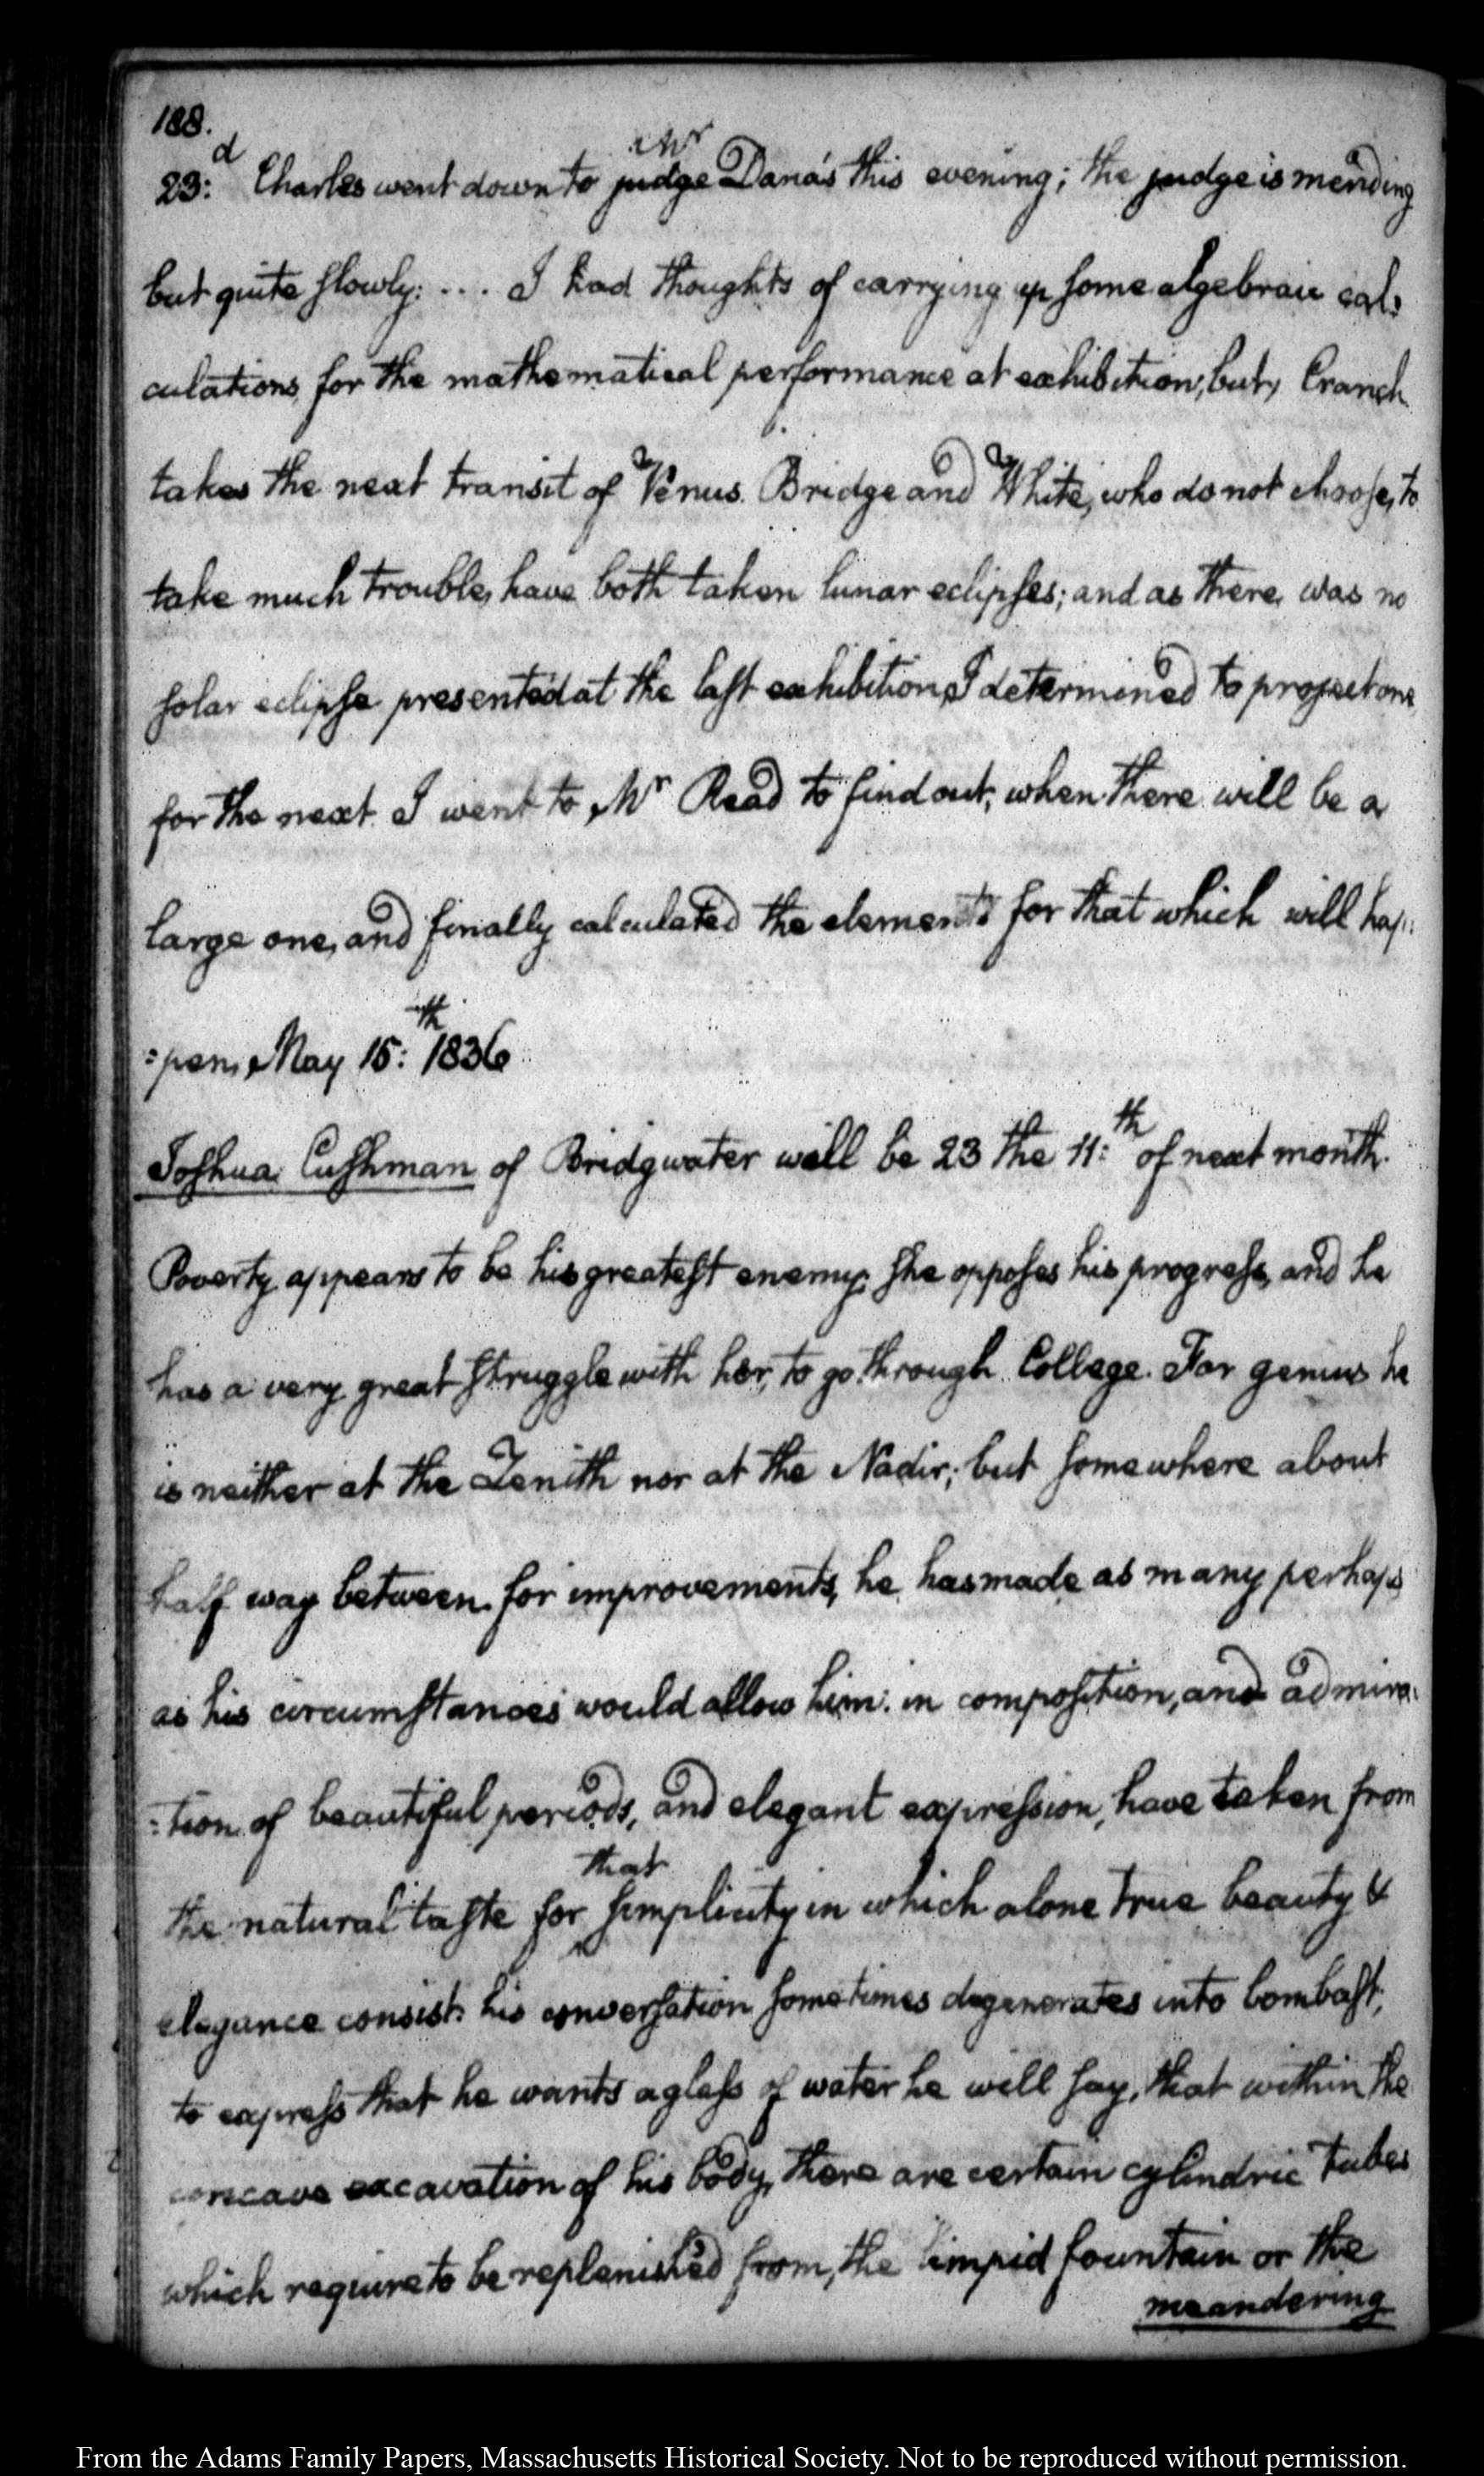 188.
23:d Charles went down to Mr judge Dana's this evening; the judge is mending
but quite slowly: ... I had thoughts of carrying up some algebraic cal:
culations for the mathematical performance at exhibition; but, Cranch
takes the next transit of Venus. Bridge and White, who do not choose, to
take much trouble, have both taken lunar eclipses; and as there was no
solar eclipse presented at the last exhibition, I determined to project one
for the next. I went to Mr Read to find out, when there will be a
large one, and finally calculated the elements for that which will hap:
:pen, May 15:th 1836
Joshua Cushman of Bridgwater will be 23 the 11:th of next month.
Poverty appears to be his greatest enemy: she opposes his progress, and he
has a very great struggle with her, to go through College. For genius he
is neither at the Zenith nor at the Nadir; but somewhere about
half way between. for improvements, he has made as many perhaps
as his circumstances would allow him: in composition, and admira:
:tion of beautiful periods, and elegant expression, have taken from
the natural taste for that simplicity in which alone true beauty &
elegance consist: his conversation sometimes degenerates into bombast;
to express that he wants a glass of water he will say, that within the
concave excavation of his body, there are certain cylindric tubes
which require to be replenished from, the limpid fountain or the
meandering
From the Adams Family Papers, Massachusetts Historical Society. Not to be reproduced without permission.